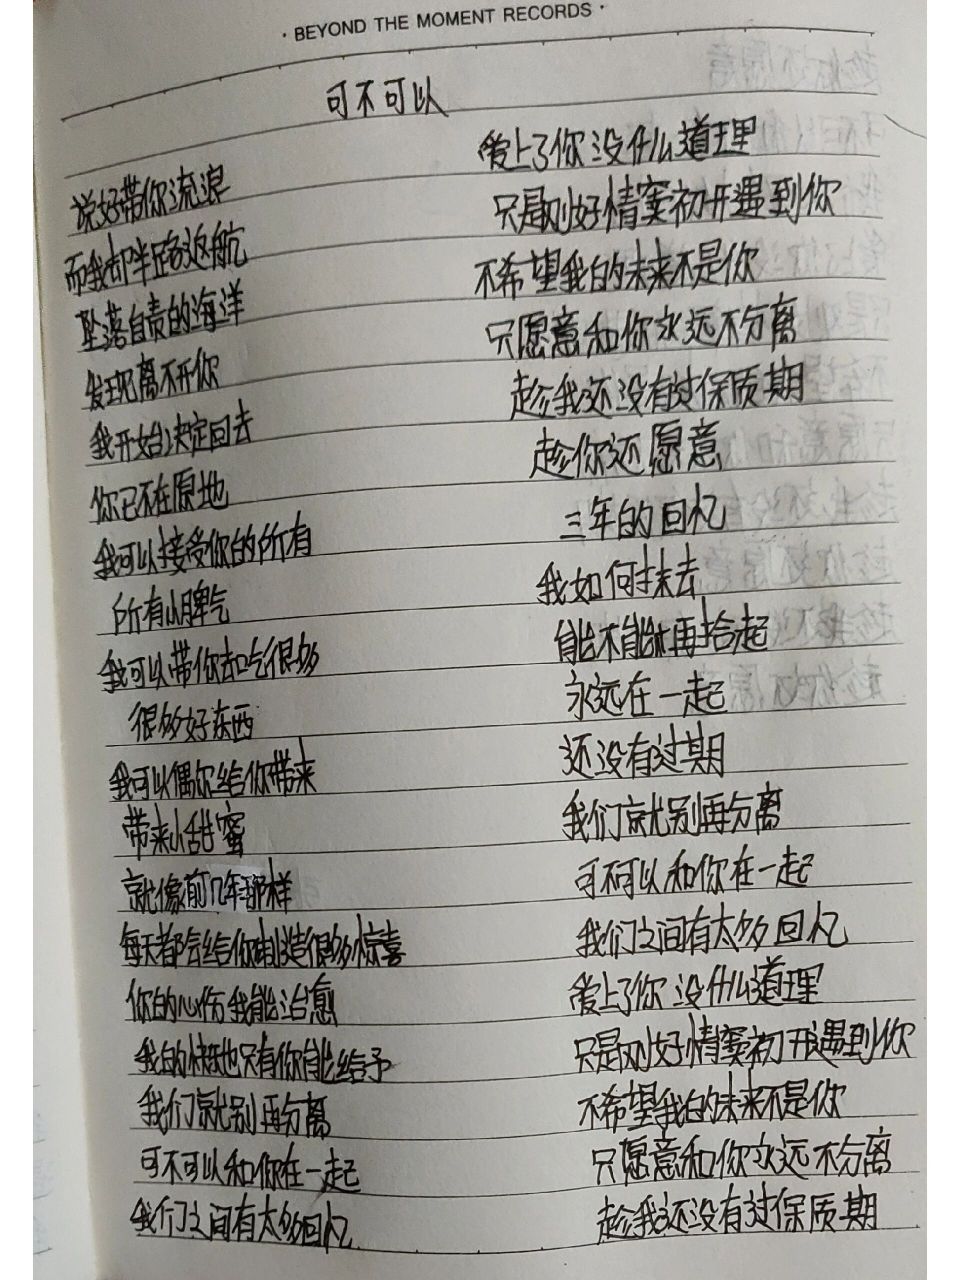 · BEYOND THE MOMENT RECORDS ·
可不可以
说好带你流浪
而我却半路返航
坠落自责的海洋
发现离不开你
我开始决定回去
你已不在原地
我可以接受你的所有
所有小脾气
我可以带你去吃很多
很多好东西
我可以偶尔给你带来
带来小甜蜜
就像前几年那样
每天都会给你制造很多惊喜
你的心伤我能治愈
我的快乐也只有你能给予
我们就别再分离
可不可以和你在一起
我们之间有太多回忆
爱上了你没什么道理
只是刚好情窦初开遇到你
不希望我的未来不是你
只愿意和你永远不分离
趁我还没有过保质期
趁你还愿意
三年的回忆
我如何抹去
能不能再拾起
永远在一起
还没有过期
我们就别再分离
可不可以和你在一起
我们之间有太多回忆
爱上了你没什么道理
只是刚好情窦初开遇到你
不希望我的未来不是你
只愿意和你永远不分离
趁我还没有过保质期